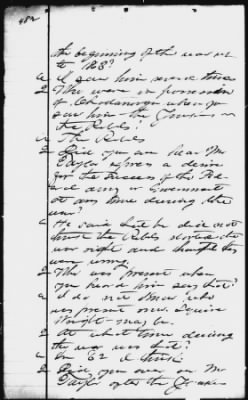 482
the beginning of the war up
to 1863?
a I saw him several times
Q Who were in possession
of Chattanooga when you
saw him – the Yankees or
the Rebels?
a The Rebels
Q Did you ever hear Mr
Taylor express a desire
for the success of the Fed-
eral army or Government
at any time during the
war?
a He said that he did not
think the Rebels started the
war right and thought they
were wrong.
Q Who was present when
you heard him say that?
a I do not know who
was present now. Squire
Wright may be.
Q At what time during
the war was that?
a In 62 I think
Q Did you ever see Mr
Taylor after the Yankees